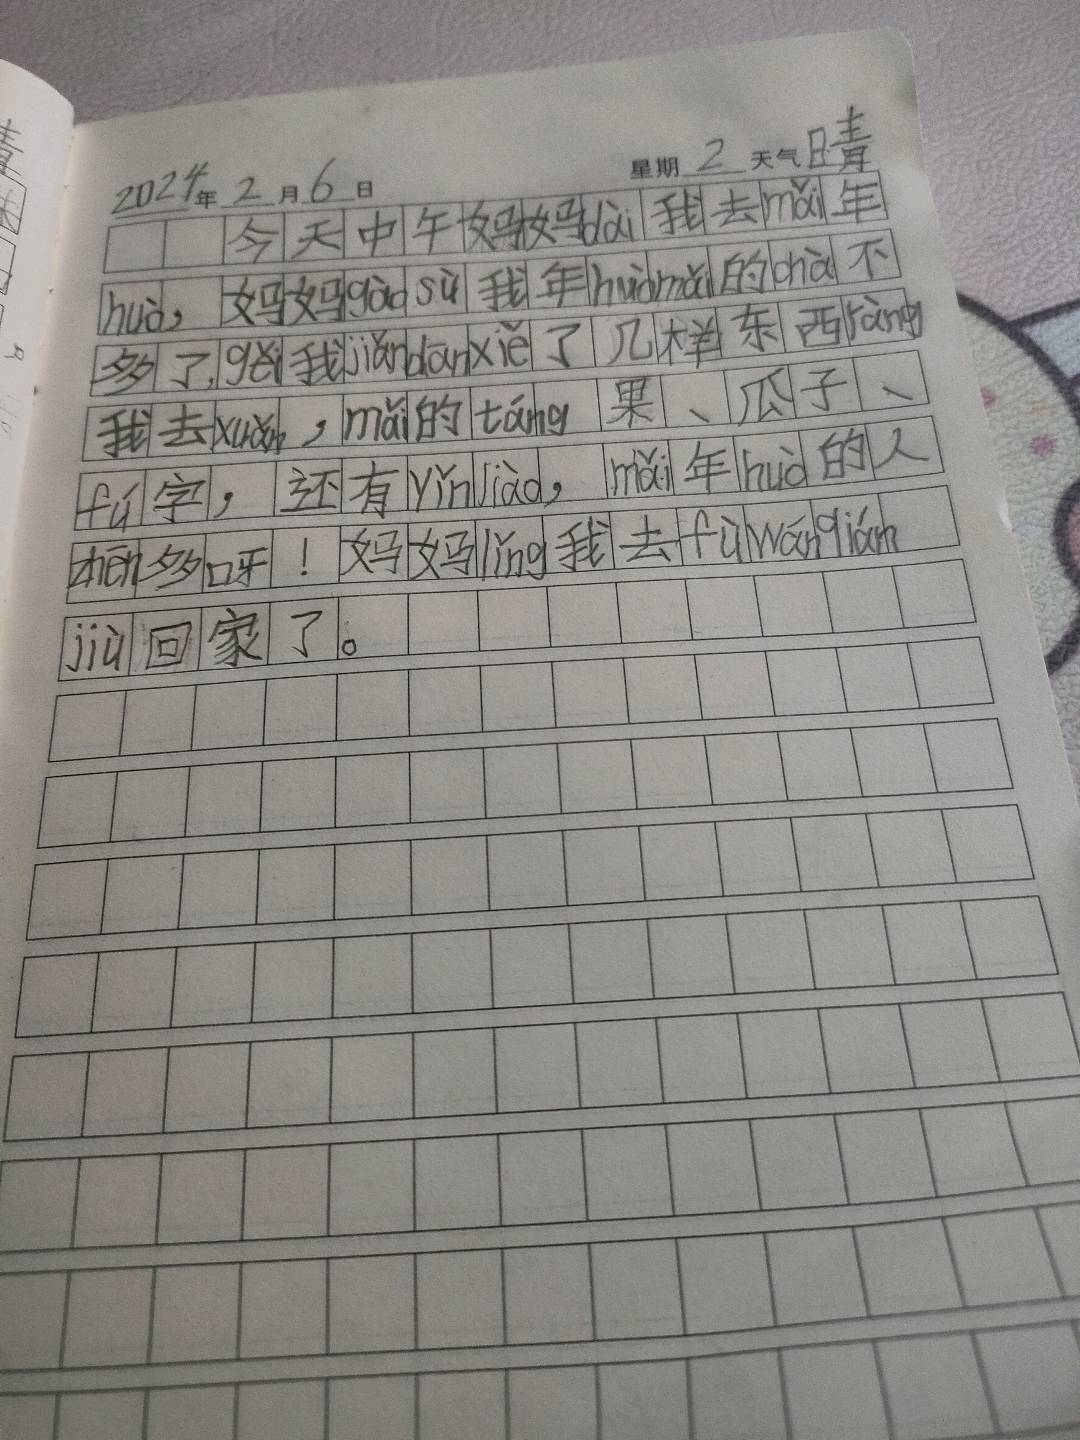 2024年 2 月 6 日 星期 2 天气 晴
今天中午妈妈dài我去mǎi年
huò，妈妈gào sù我年huò mǎi的chà不
多了，gěi我jiǎn dān xiě了几样东西ràng
我去xuǎn，mǎi的táng果、瓜子、
fú字，还有yǐn liào，mǎi年huò的人
zhēn多呀！妈妈lǐng我去fù wán qián
jiù回家了。